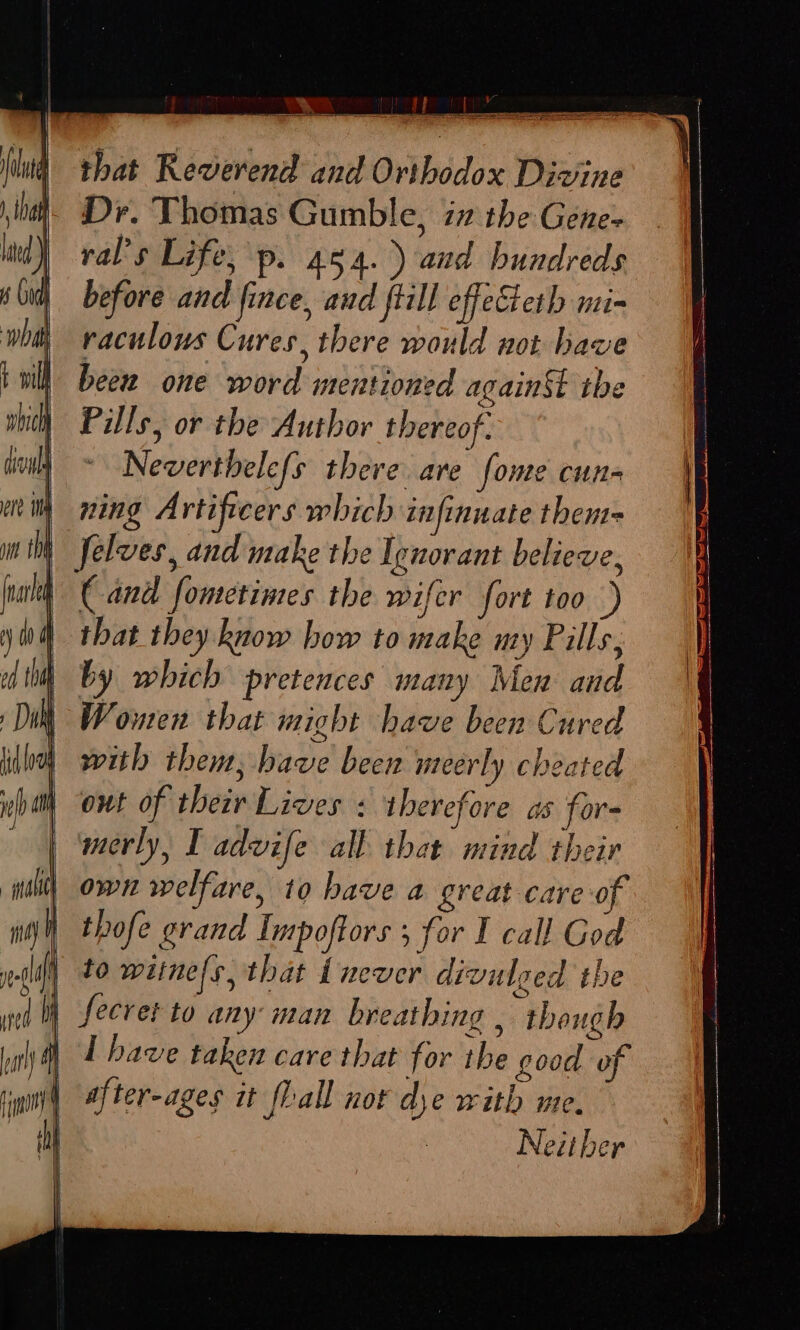 that Reverend and Orthodox Divine
Dr. Thomas Gumble, in the Gene-
ral's Life, p. 454. ) and hundreds
before and ſince, and ſtill effecteth mi-
raculous Cures, there would not have
been one word mentioned against the
Pills, or the Author thereof.
Nevertheleſs there are ſome cun-
ning Artificers which inſinuate them-
ſelves, and make the Ignorant believe,
( and ſometimes the wiſer ſort too )
that they know how to make my Pills,
by which pretences many Men and
Women that might have been Cured
with them, have been meerly cheated
out of their Lives : therefore as for-
merly, I adviſe all that mind their
own welfare, to have a great care of
thoſe grand Impoſtors ; for I call God
to witneſs, that I never divulged the
ſecret to any man breathing , though
I have taken care that for the good of
after-ages it ſhall not dye with me.
Neither